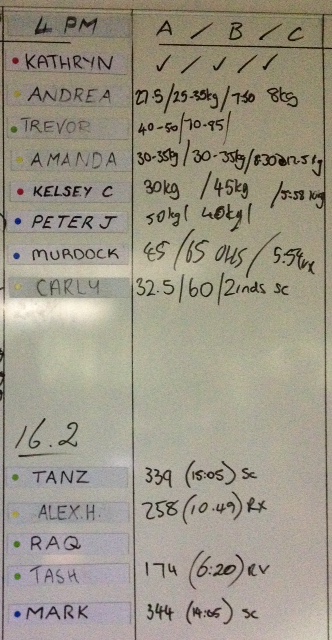 4 PM A / B / C
KATHRYN ✓ / ✓ / ✓
ANDREA 27.5/25-35kg/7:50 8kg
TREVOR 40-50/70-95/
AMANDA 30-35kg/30-35kg/
KELSEY C 30kg /45kg /5:58 10kg
PETER J 50kg/ 40kg/
MURDOCK 45/65 OHS/5:54rx
CARLY 32.5/60/2 inds sc
16.2
TANZ 339 (15:05) sc
ALEX.H. 258 (10.49) RX
RAQ
TASH 174 (6:20) RV
MARK 344 (14:05) sc